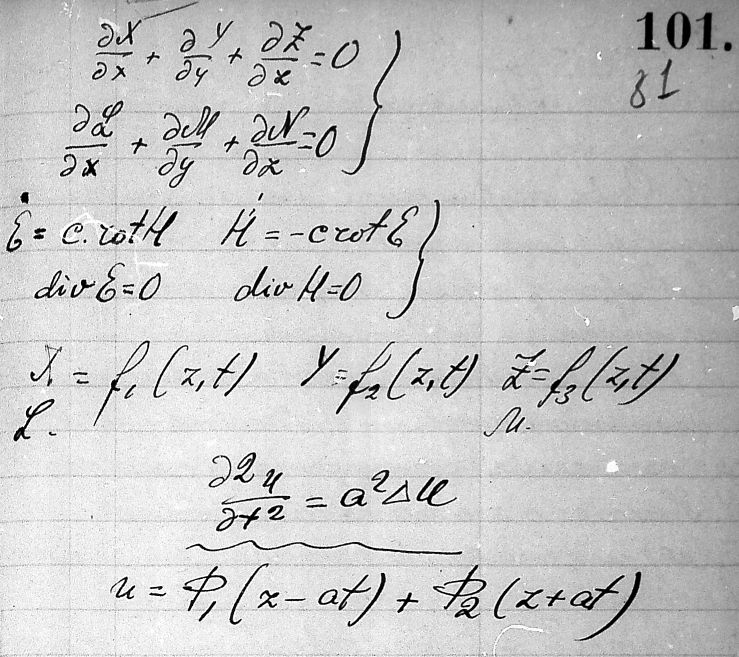 101.
81
∂X/∂x + ∂Y/∂y + ∂Z/∂z = 0
∂L/∂x + ∂M/∂y + ∂N/∂z = 0
Ė = c.rot H Ḣ = -c rot E
div E = 0 div H = 0
X = f₁(z,t) Y = f₂(z,t) Z = f₃(z,t)
L. M.
∂²u/∂t² = a²Δu
u = Φ₁(z-at) + Φ₂(z+at)